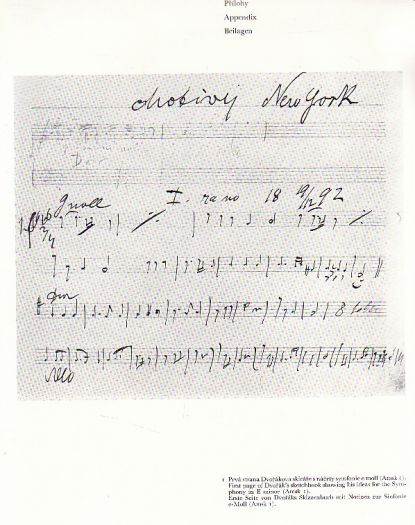 Přílohy
Appendix
Beilagen
Motivy New York
I. rano 18 19/12 92
1 Prvá strana Dvořákova skizáře s náčrty symfonie e moll (Amsk 1).
First page of Dvořák's sketchbook showing his ideas for the Sym-
phony in E minor (Amsk 1).
Erste Seite von Dvořáks Skizzenbuch mit Notizen zur Sinfonie
e-Moll (Amsk 1).